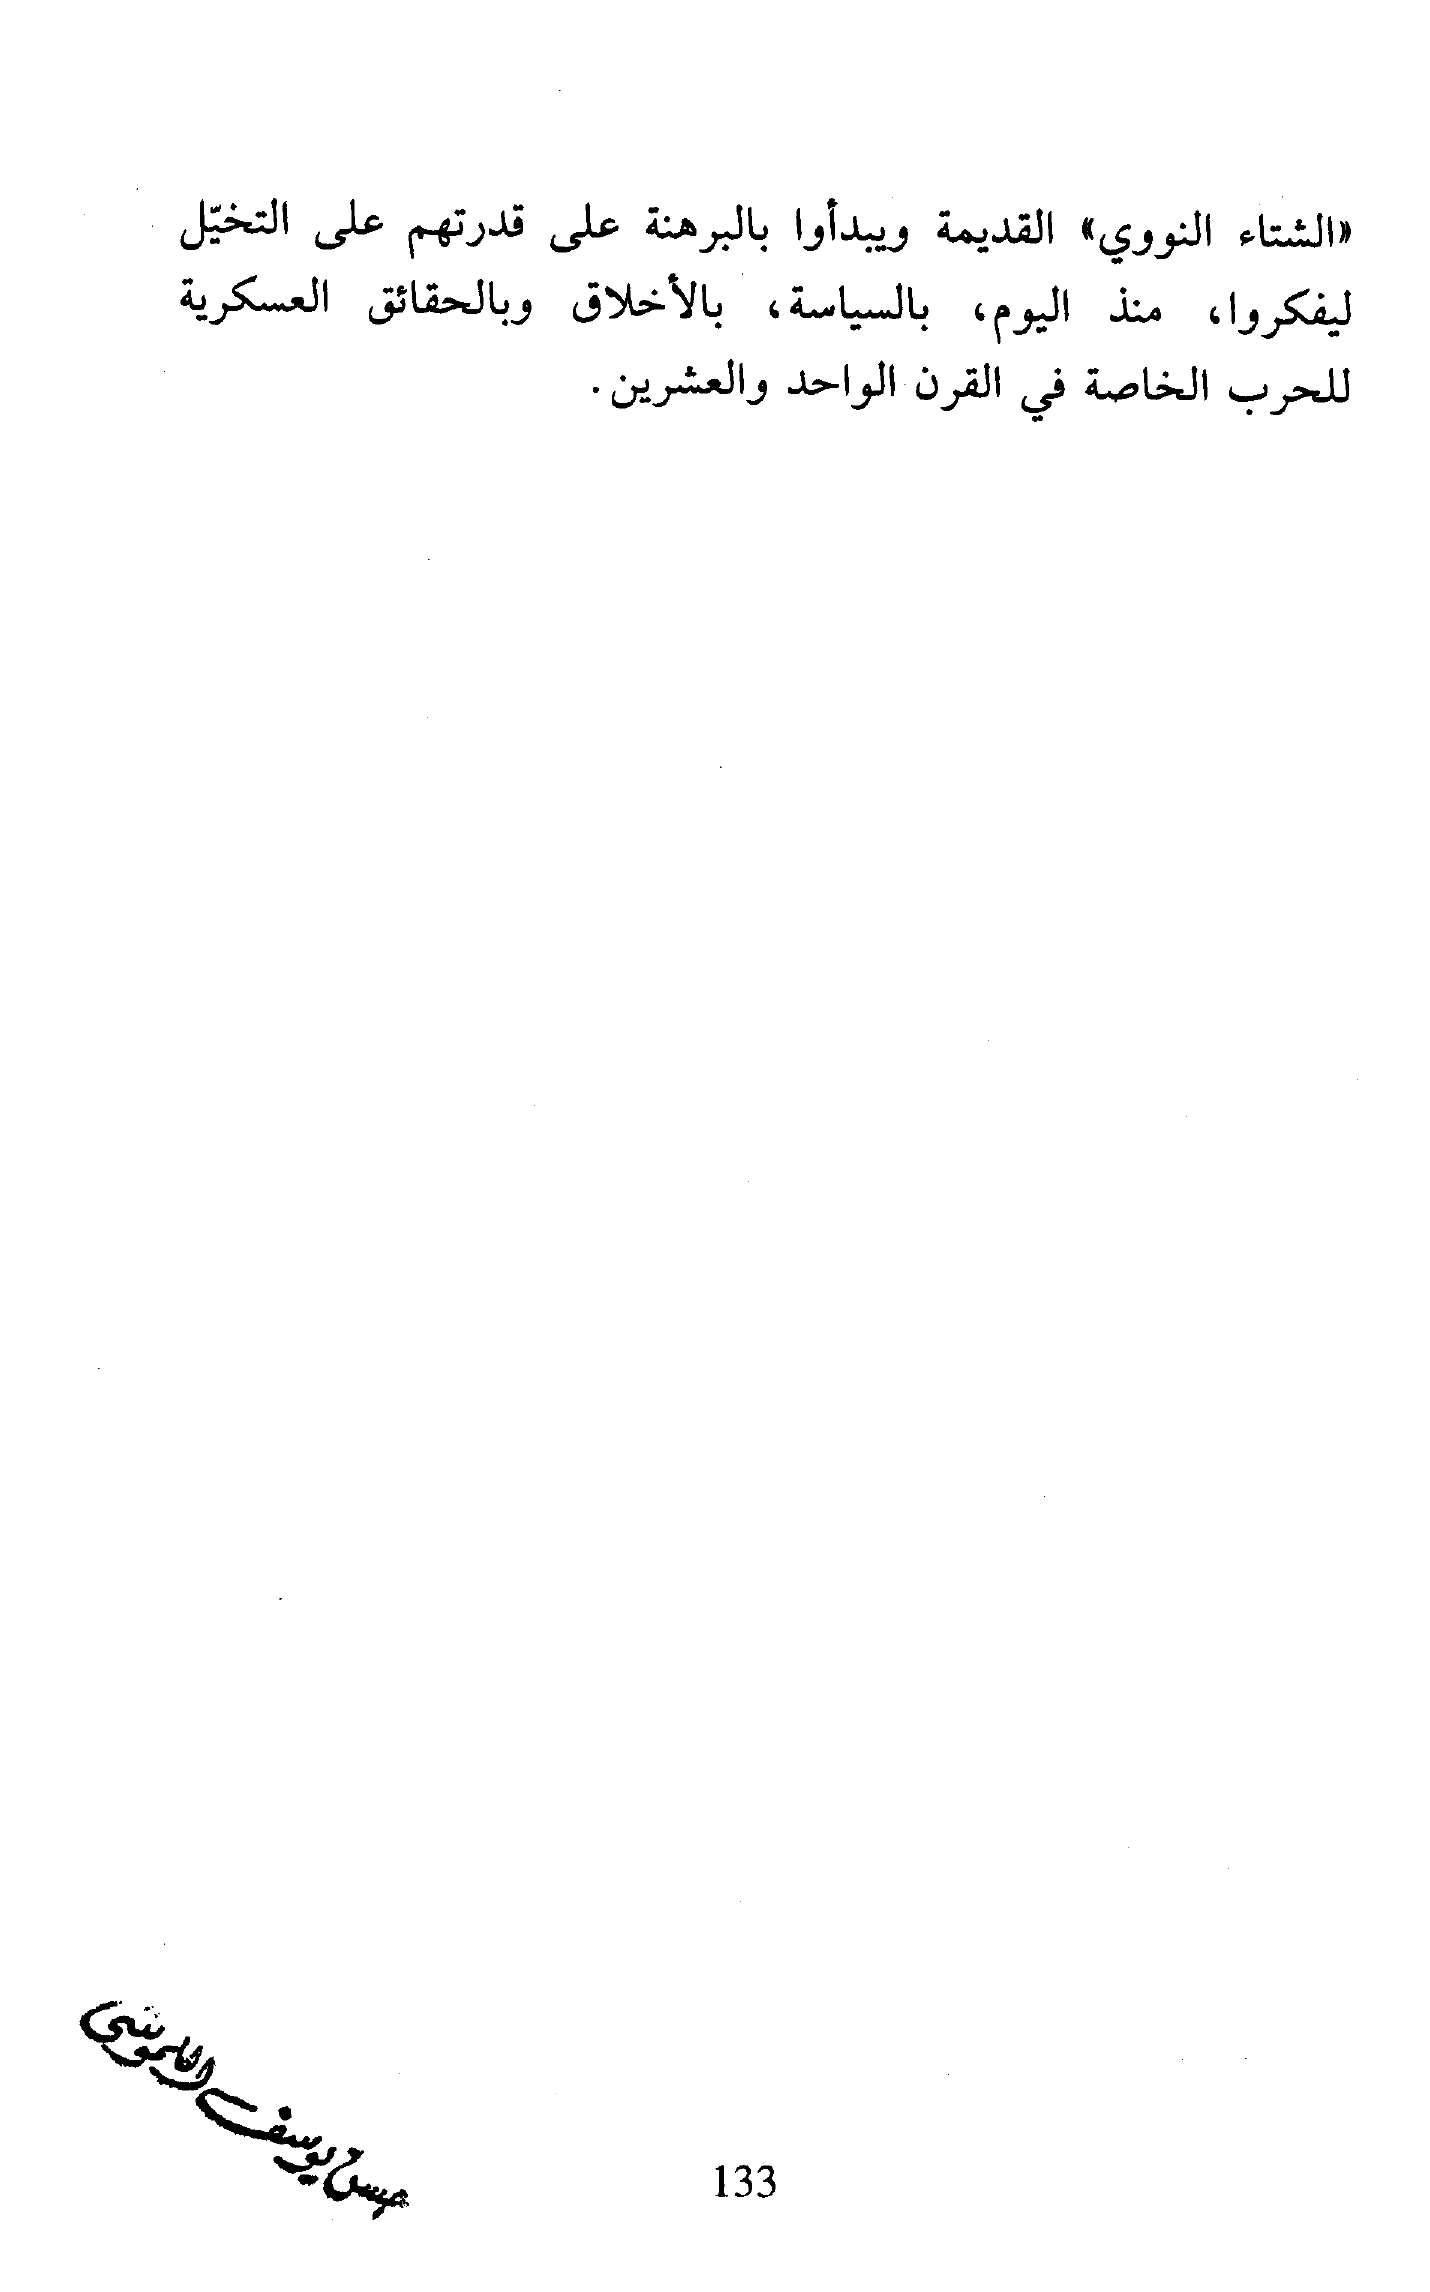 «الشتاء النووي» القديمة ويبدأوا بالبرهنة على قدرتهم على التخيّل
ليفكروا، منذ اليوم، بالسياسة، بالأخلاق وبالحقائق العسكرية
للحرب الخاصة في القرن الواحد والعشرين.
حسن يوسف
133